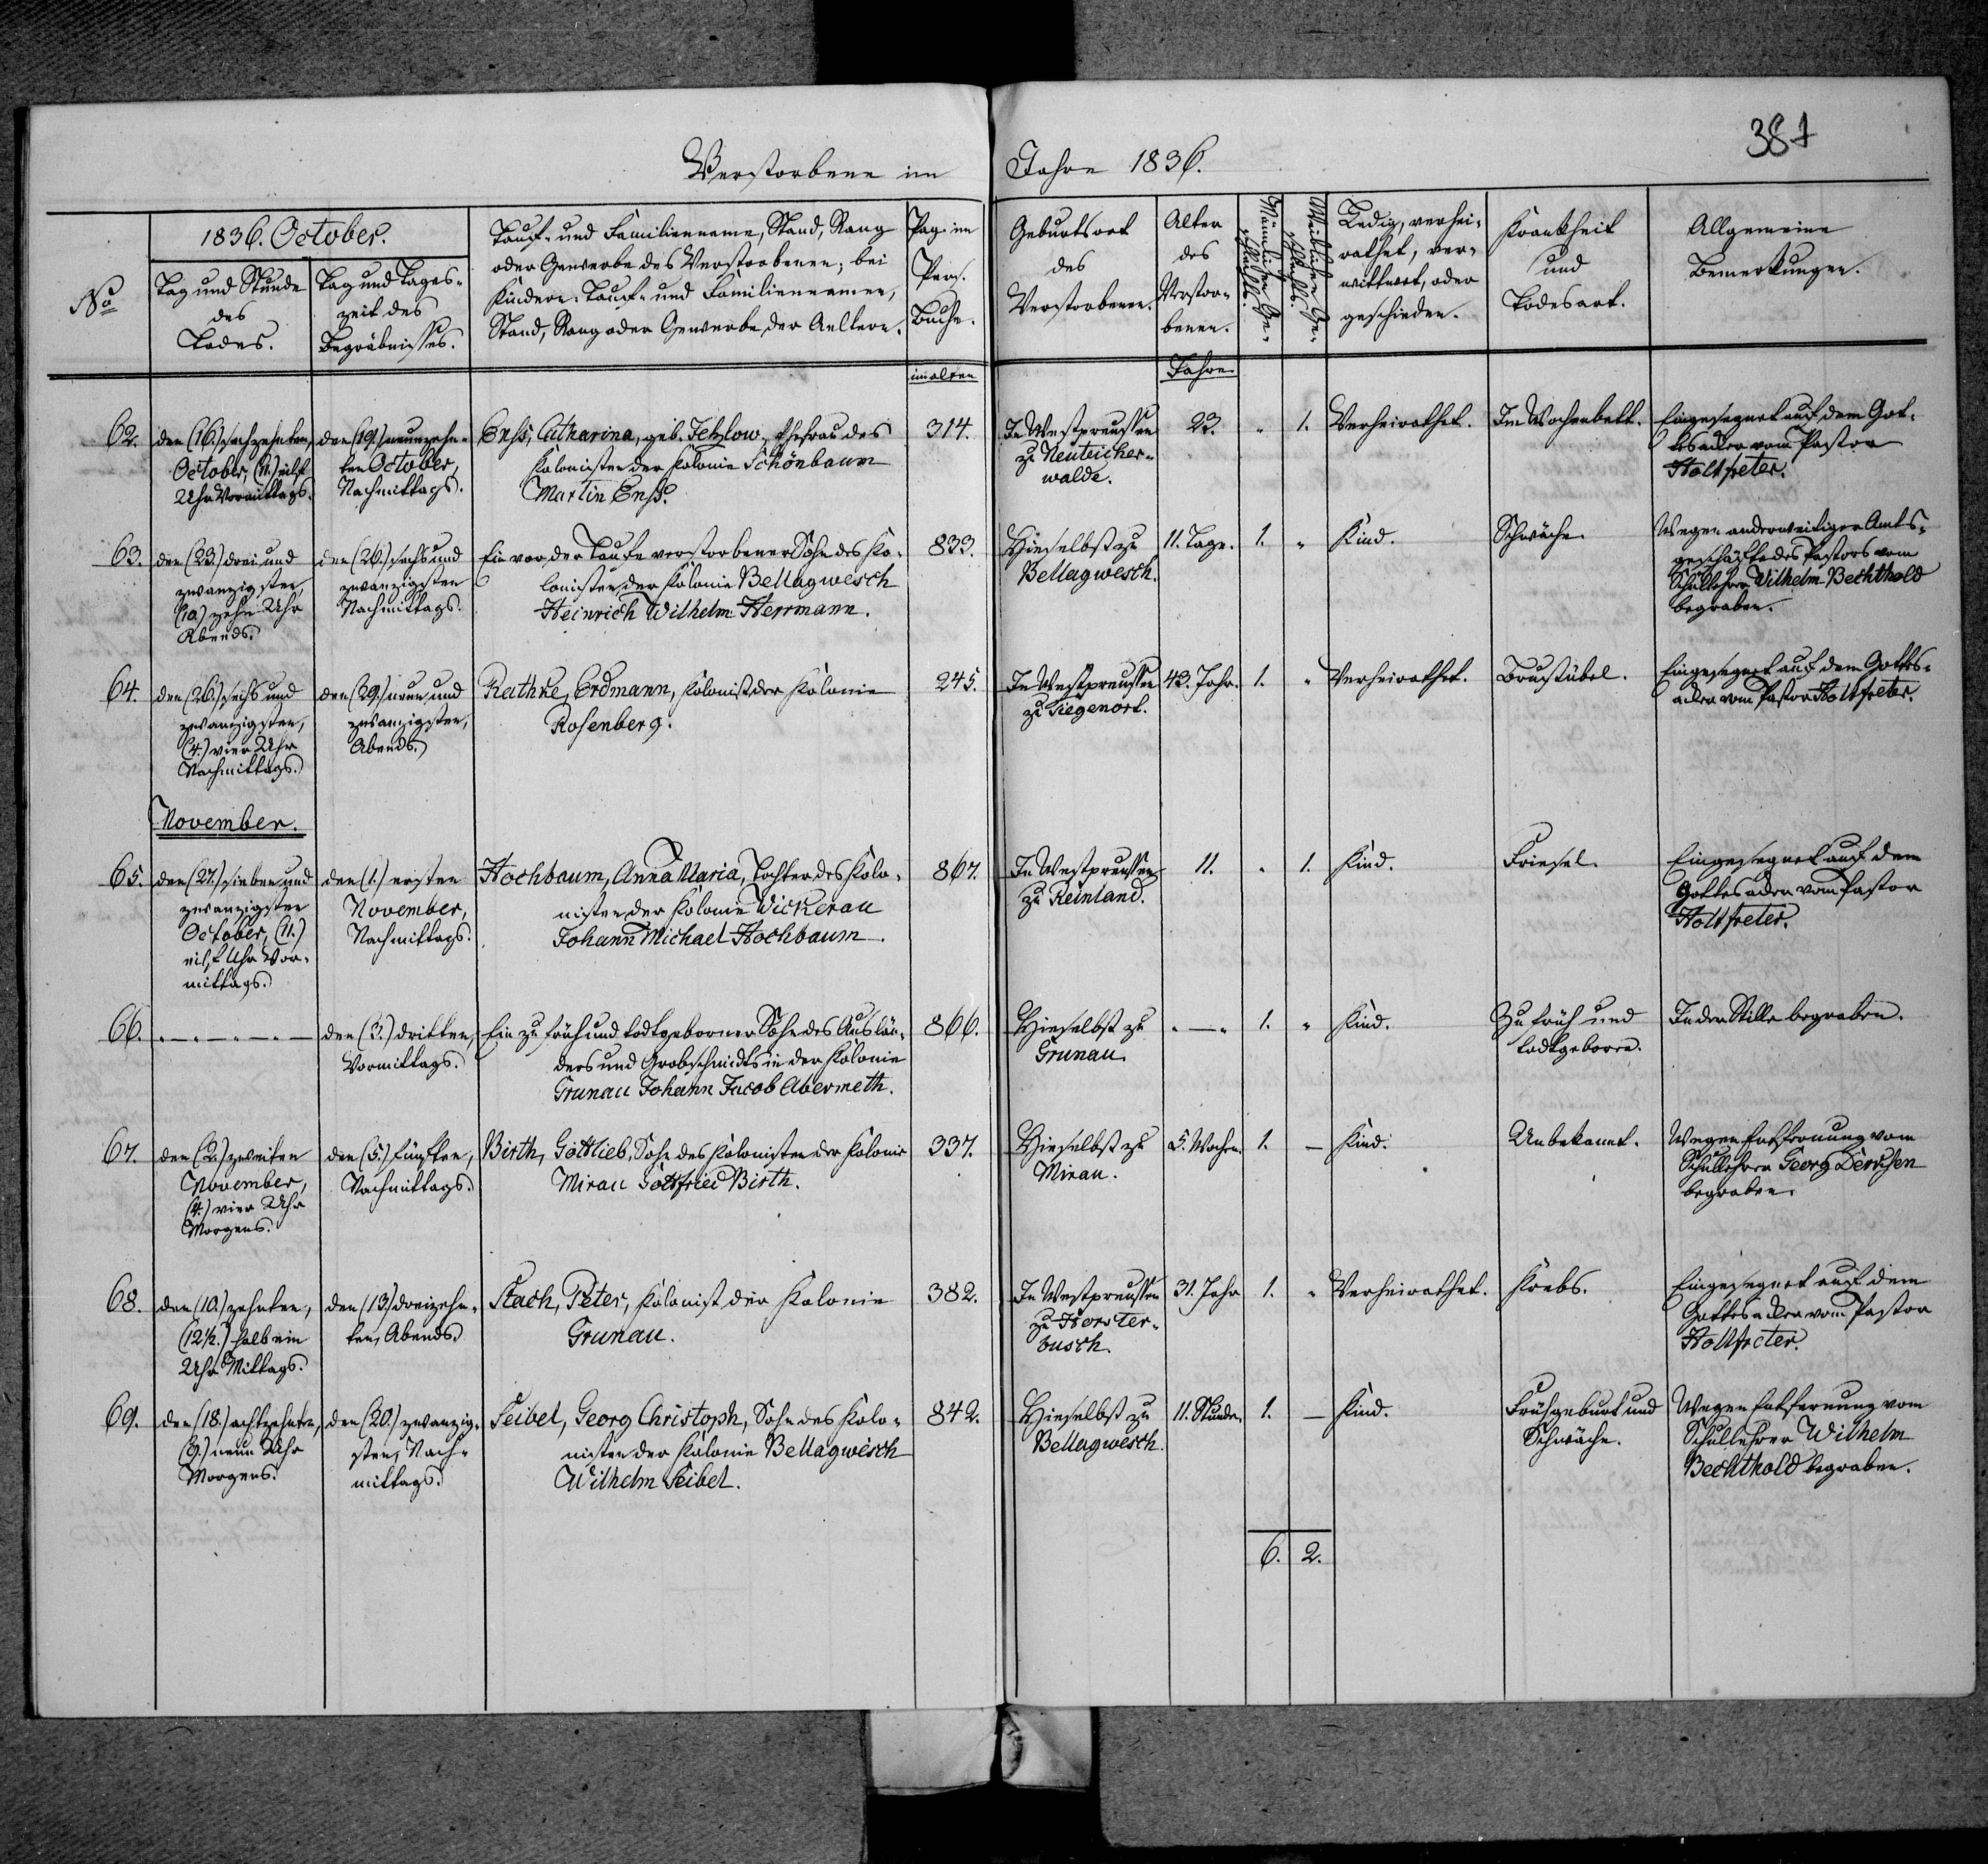 381
Verstorbene im Jahre 1836.
No
1836. October.
Tag und Stunde
des
Todes.
Tag und Tages-
zeit des
Begräbnisses.
Tauf- und Familienname, Stand, Rang
oder Gewerbe des Verstorbenen; bei
Kindern: Tauf- und Familiennamen,
Stand, Rang oder Gewerbe der Aeltern.
Pag. im
Pers.
Buche.
im alten
Geburtsort
des
Verstorbenen.
Alter
des
Verstor-
benen.
Jahre
Männlichen Ge-
schlechts.
Weiblichen Ge-
schlechts.
Ledig, verhei-
rathet, ver-
wittwet, oder
geschieden.
Krankheit
und
Todesart.
Allgemeine
Bemerkungen.
62.
den (16.) sechzehnten
October, (11.) eilf
Uhr Vormittags.
den (19.) neunzehn-
ten October,
Nachmittags.
Enss, Catharina, geb. Jetzlow, Ehefrau des
Kolonisten der Kolonie Schönbaum
Martin Enss.
314.
In Westpreussen
zu Neuteicher-
walde.
23.
"
1.
Verheirathet.
Im Wochenbett.
Eingesegnet auf dem Got-
tesacker vom Pastor
Holtfreter.
63.
den (23.) drei und
zwanzigsten,
(10.) zehn Uhr
Abends.
den (26.) sechs und
zwanzigsten
Nachmittags.
Ein vor der Taufe verstorbener Sohn des Ko-
lonisten der Kolonie Bellagwesch
Heinrich Wilhelm Herrmann.
833.
Hieselbst zu
Bellagwesch.
11. Tage.
1.
"
Kind.
Schwäche.
Wegen anderweitiger Amts-
geschäfte des Pastors vom
Schullehrer Wilhelm Bechthold
begraben.
64.
den (26.) sechs und
zwanzigsten,
(4.) vier Uhr
Nachmittags.
den (29.) neun und
zwanzigsten,
Abends.
Rathke, Erdmann, Kolonist der Kolonie
Rosenberg.
245.
In Westpreussen
zu Tiegenort.
43. Jahr.
1.
"
Verheirathet.
Brustübel.
Eingesegnet auf dem Gottes-
acker vom Pastor Holtfreter.
November.
65.
den (27.) sieben und
zwanzigsten
October, (11.)
eilf Uhr Vor-
mittags.
den (1.) ersten
November,
Nachmittags.
Hochbaum, Anna Maria, Tochter des Kolo-
nisten der Kolonie Wickerau
Johann Michael Hochbaum.
867.
In Westpreussen
zu Reinland.
11.
"
1.
Kind.
Friesel.
Eingesegnet auf dem
Gottesacker vom Pastor
Holtfreter.
66.
den (3.) dritten,
Vormittags.
Ein zu früh und todtgeborner Sohn des Auslän-
ders und Grobschmidts in der Kolonie
Grunau Johann Jacob Abermeth.
866.
Hieselbst zu
Grunau.
" — "
1.
"
Kind.
Zu früh und
todtgeboren.
In der Stille begraben.
67.
den (2.) zweiten
November,
(4.) vier Uhr
Morgens.
den (5.) fünften,
Nachmittags.
Birth, Gottlieb, Sohn des Kolonisten der Kolonie
Mirau Gottfried Birth.
337.
Hieselbst zu
Mirau.
5. Wochen.
1.
—
Kind.
Unbekannt.
Wegen Entfernung vom
Schullehrer Georg Derksen
begraben.
68.
den (10.) zehnten,
(12½.) halb ein
Uhr Mittags.
den (13.) dreizehn-
ten, Abends.
Stach, Peter, Kolonist der Kolonie
Grunau.
382.
In Westpreussen
zu Horster-
busch.
31. Jahr
1.
"
Verheirathet.
Krebs.
Eingesegnet auf dem
Gottesacker vom Pastor
Holtfreter.
69.
den (18.) achtzehnten,
(9.) neun Uhr
Morgens.
den (20.) zwanzig-
sten, Nach-
mittags.
Seibel, Georg Christoph, Sohn des Kolo-
nisten der Kolonie Bellagwesch
Wilhelm Seibel.
842.
Hieselbst zu
Bellagwesch.
11. Stunden.
1.
—
Kind.
Frühgeburt und
Schwäche.
Wegen Entfernung vom
Schullehrer Wilhelm
Bechthold begraben.
6.
2.